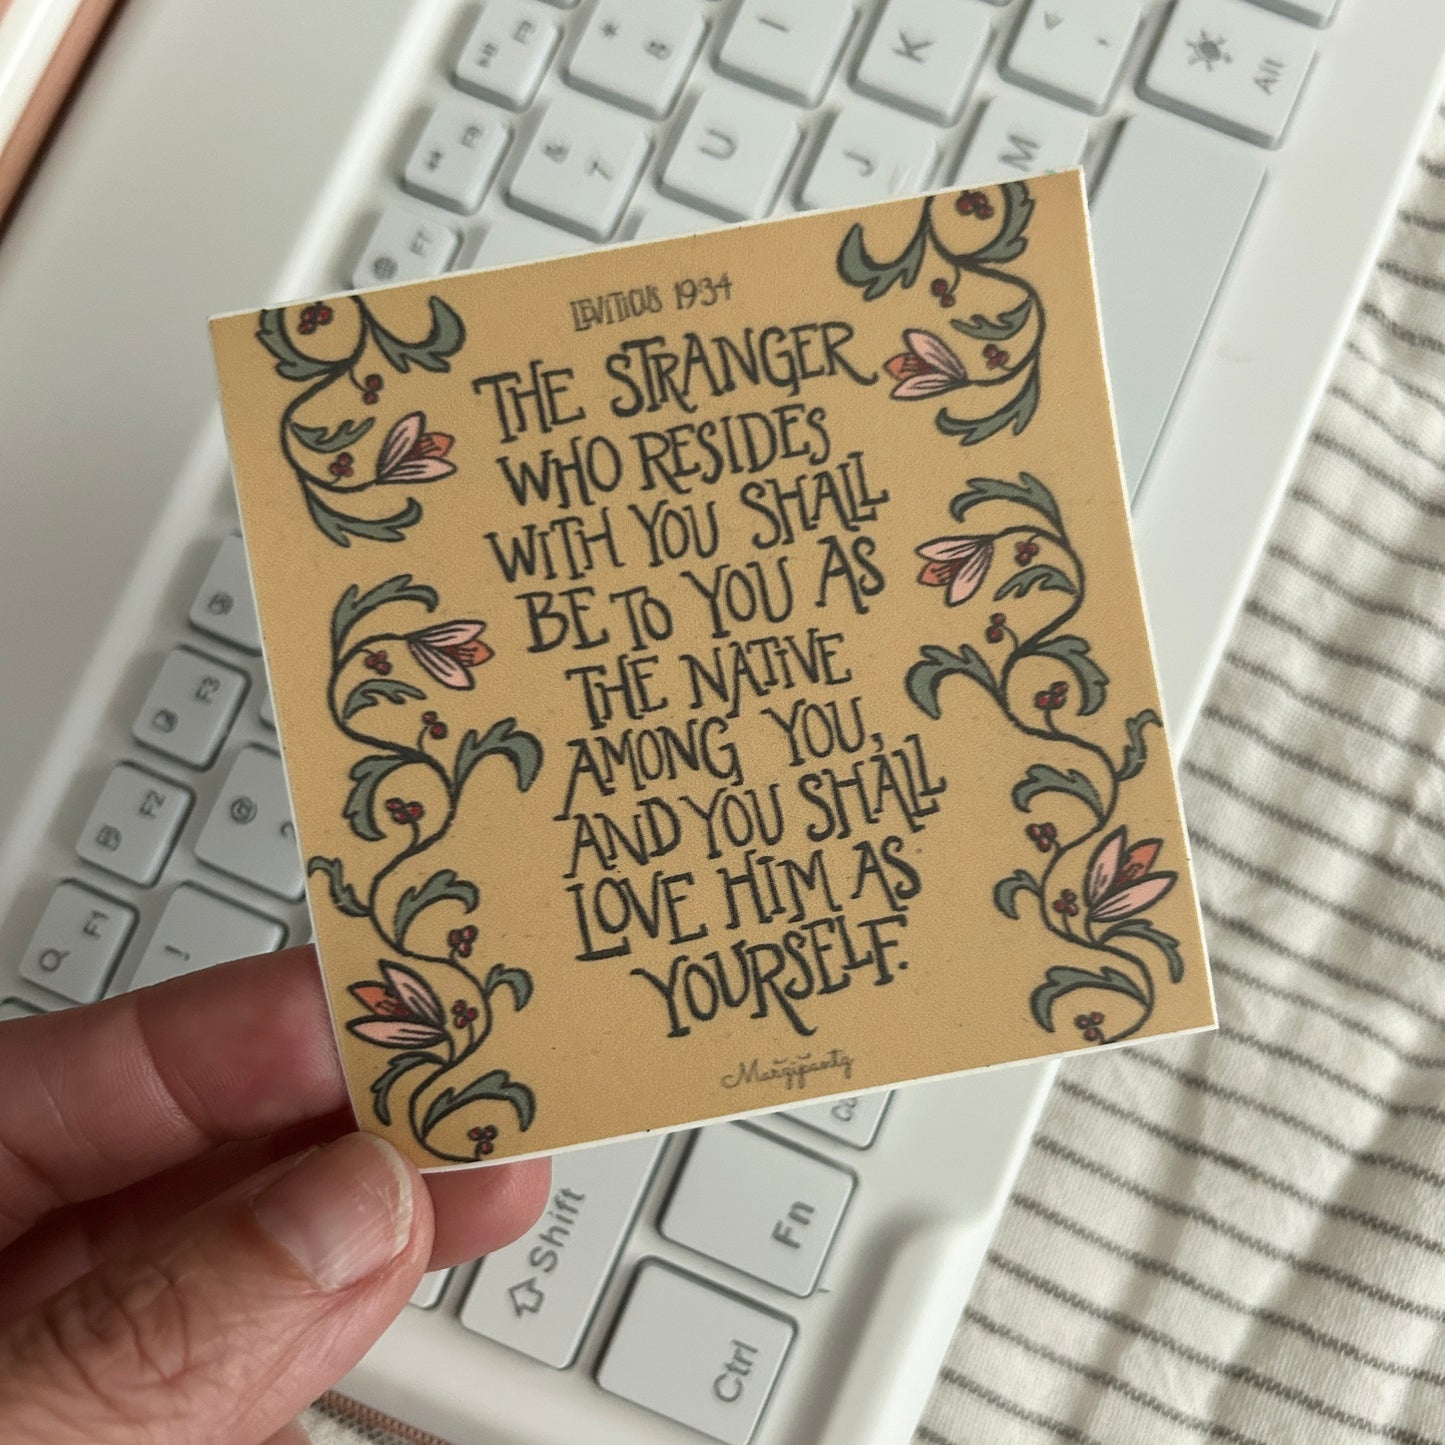 LEVITICUS 19:34
THE STRANGER
WHO RESIDES
WITH YOU SHALL
BE TO YOU AS
THE NATIVE
AMONG YOU,
AND YOU SHALL
LOVE HIM AS
YOURSELF.
Marzipantz
F9
* 8
I
K
< ,
Alt
F8
& 7
U
J
M
F7
F3
F2
@ 2
F1
!
Shift
Fn
Ctrl